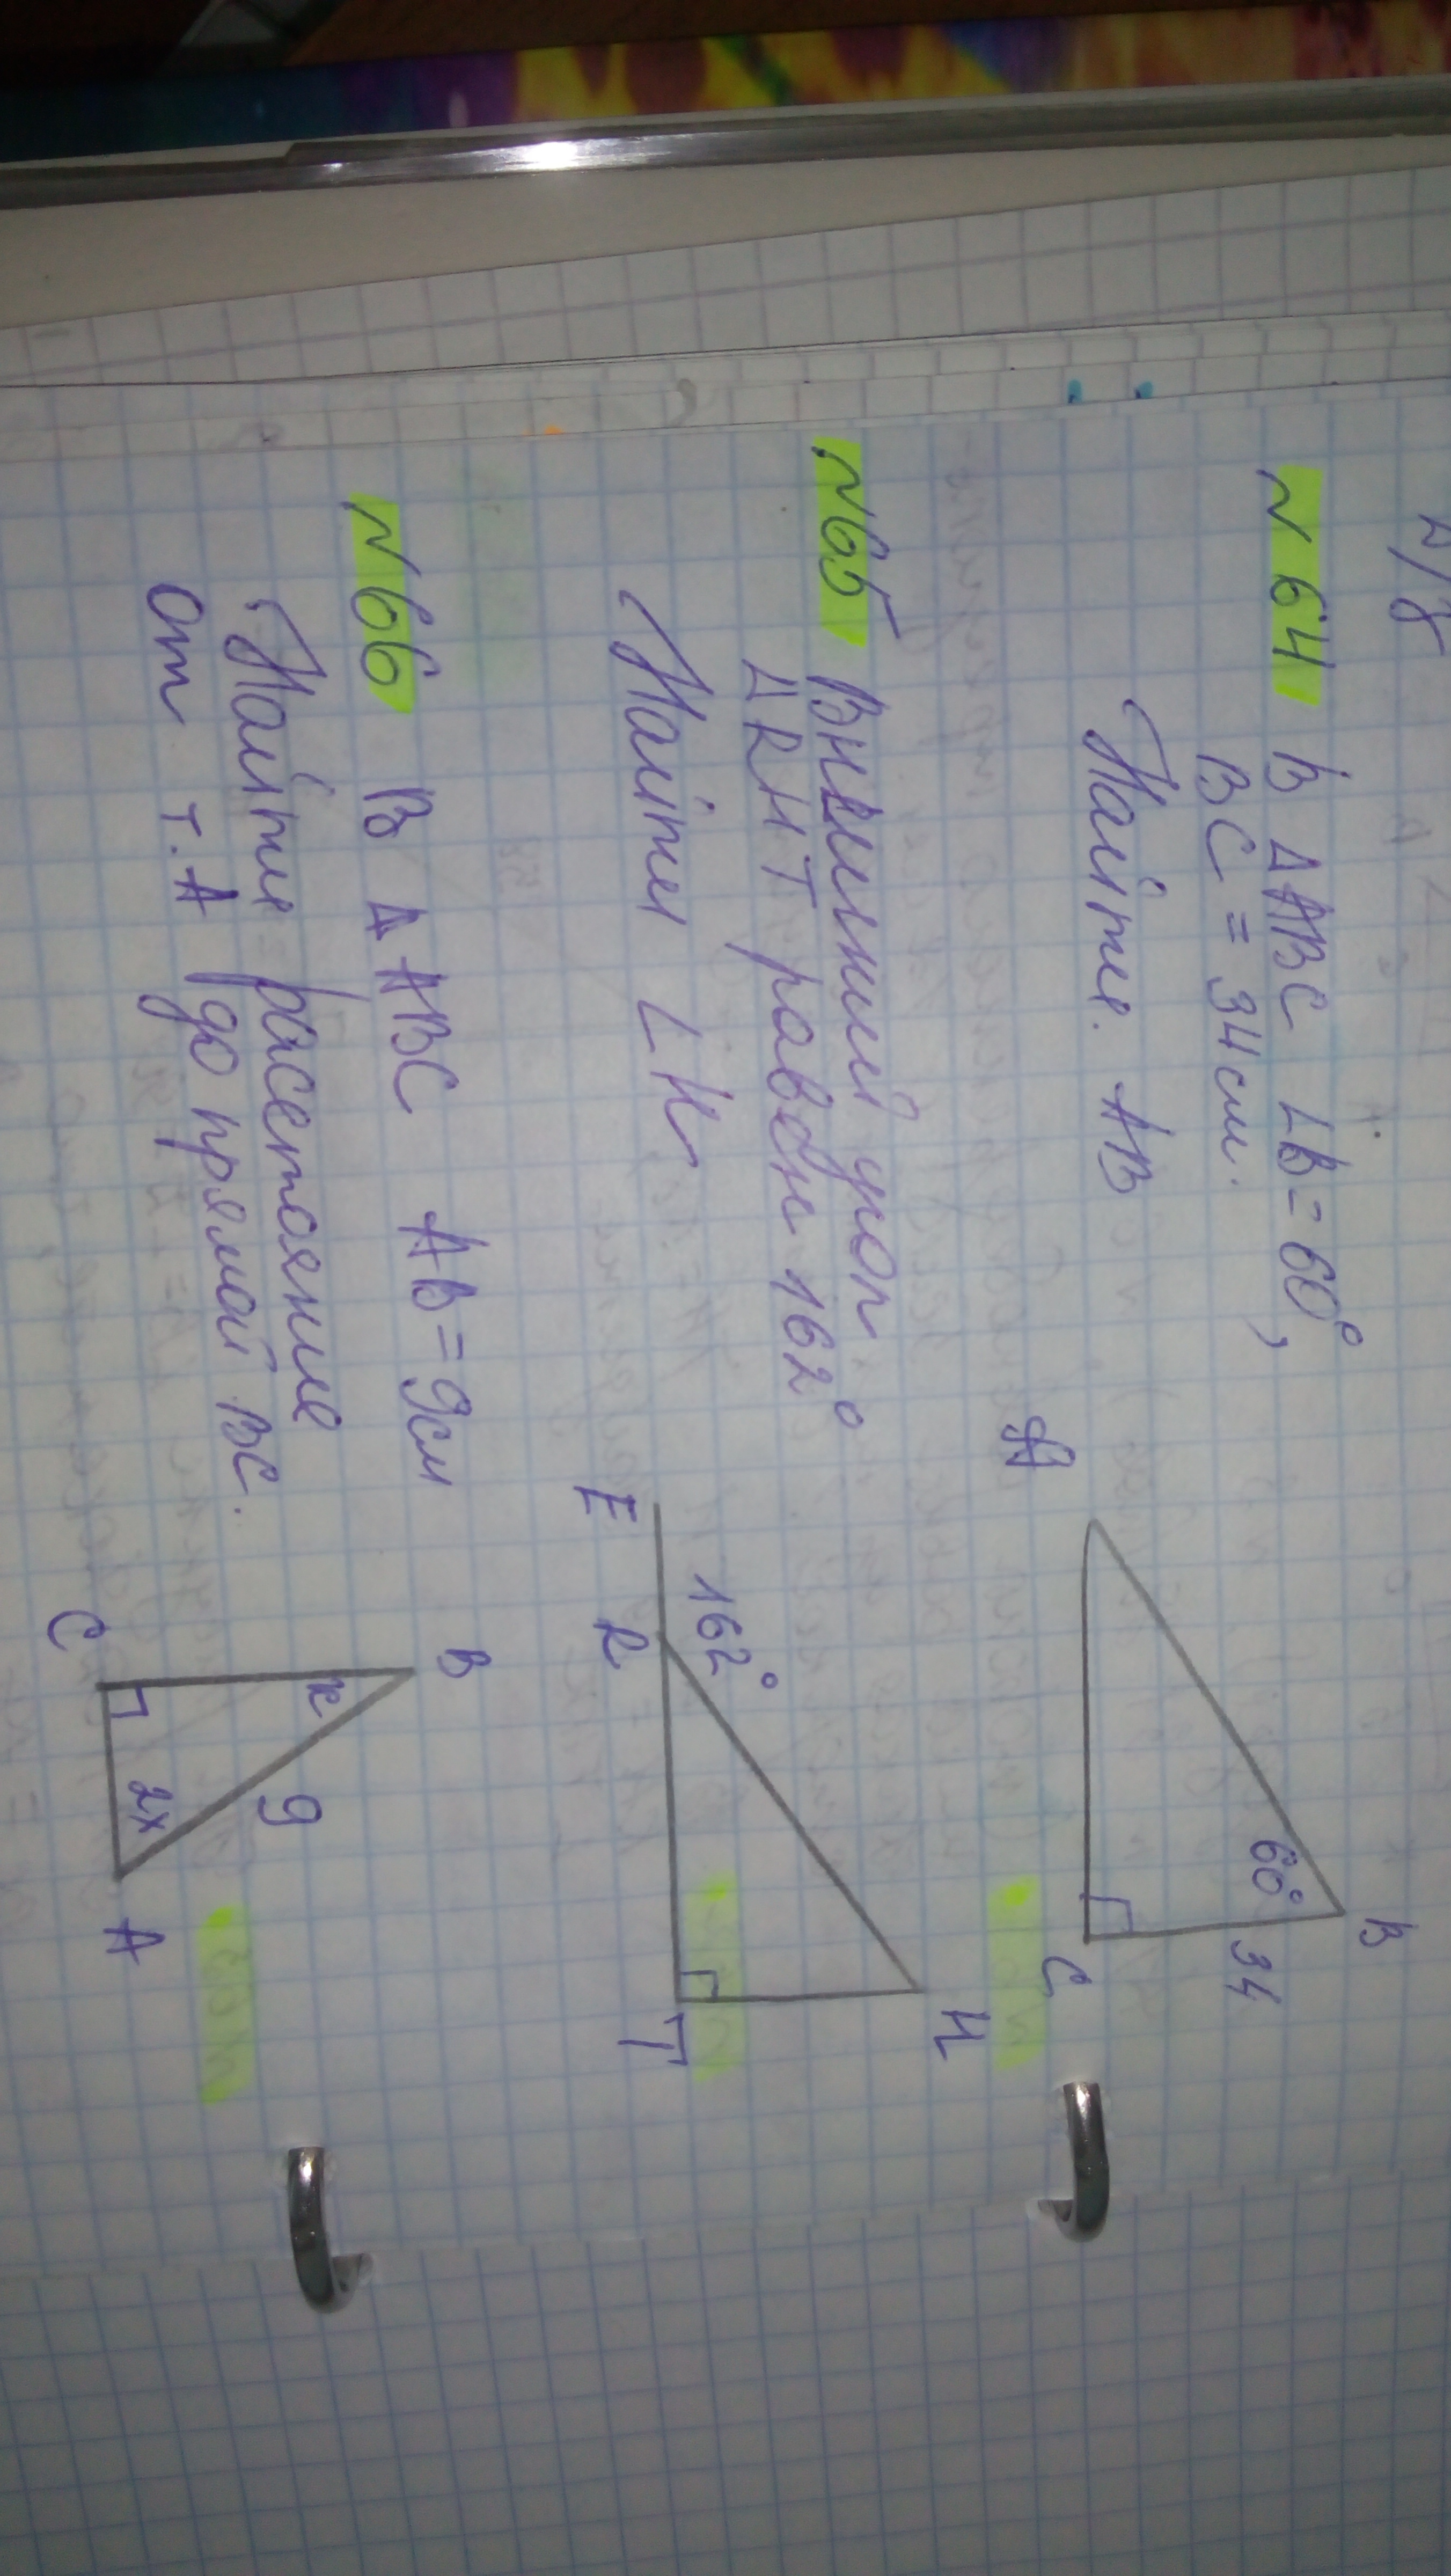 Д/з
N 64 В ΔABC ∠B=60°,
BC = 34 см.
Найти: AB
A
60°
B
34
C
N65 Внешний угол
ΔRHT равен 162°
Найти ∠H
E
162°
R
H
T
N66 В ΔABC AB=9см
Найти расстояние
от т.A до прямой BC.
B
x
9
C
2x
A